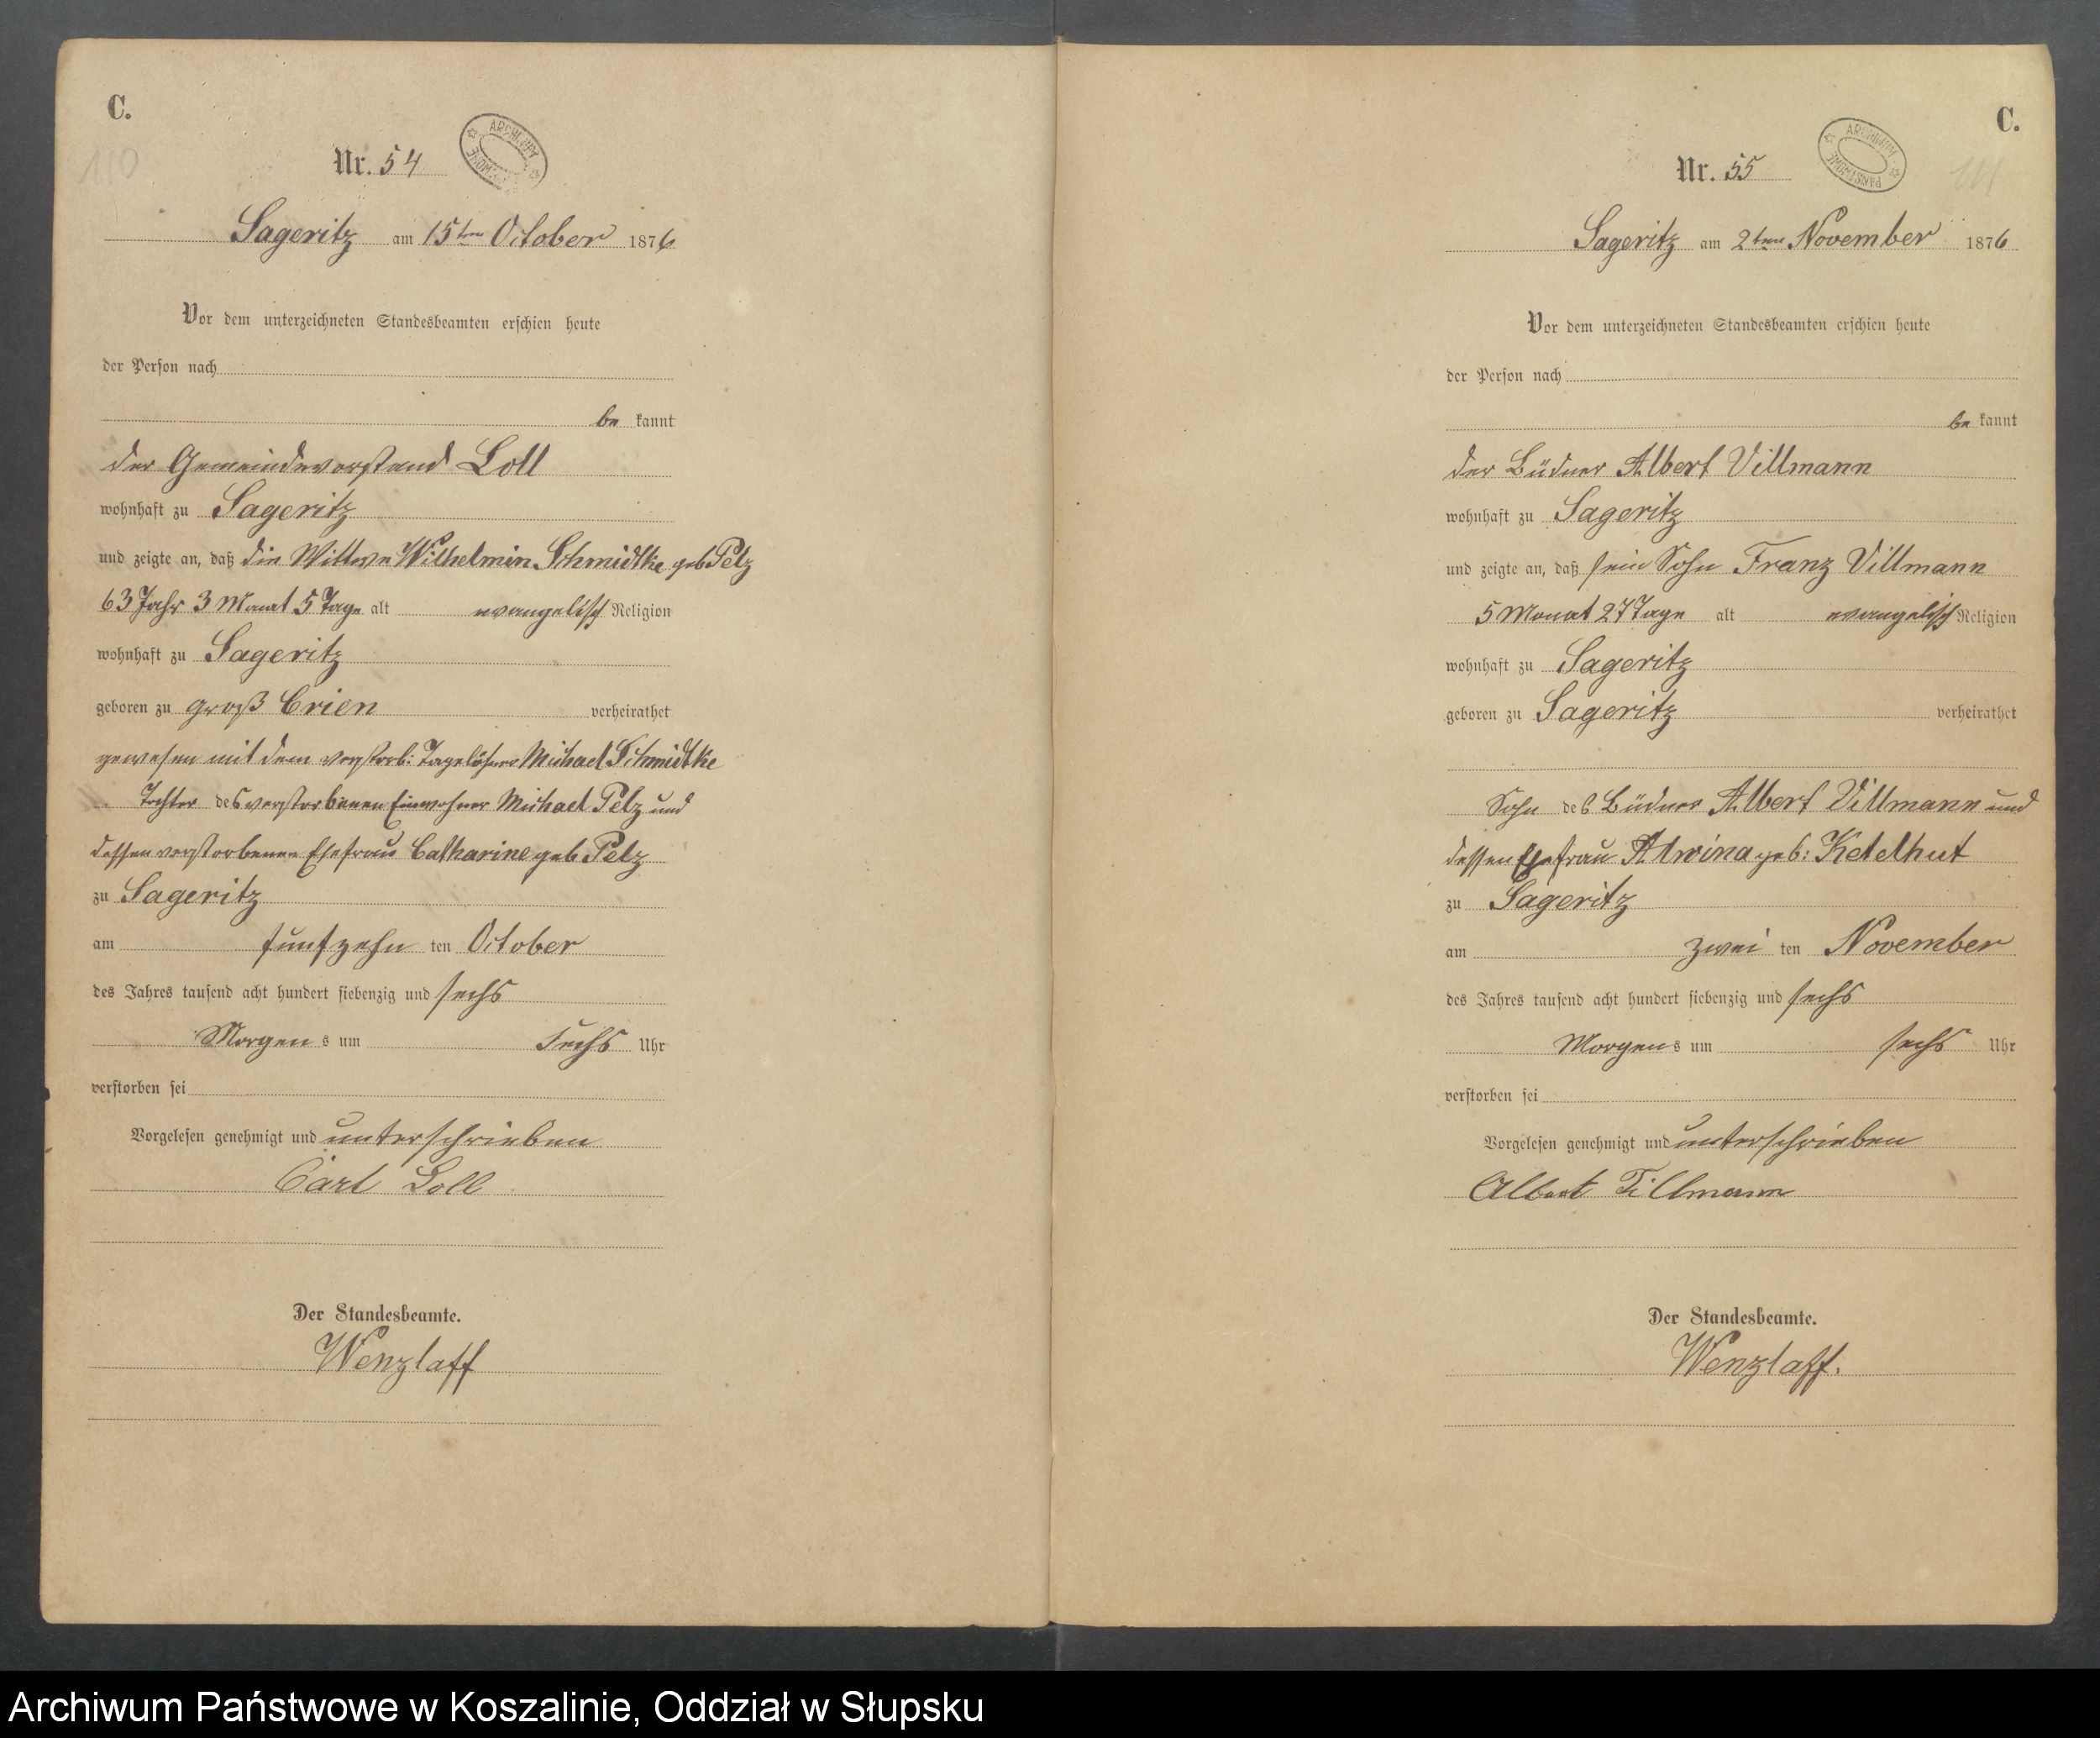 C.
110
Nr. 54
ARCHIWUM PAŃSTWOWE
Sageritz am 15ten October 1876
Vor dem unterzeichneten Standesbeamten erschien heute
der Person nach
be kannt
der Gemeindevorstand Loll
wohnhaft zu Sageritz
und zeigte an, daß die Wittwe Wilhelmine Schmidtke geb Pelz
63 Jahr 3 Monat 5 Tage alt evangelisch Religion
wohnhaft zu Sageritz
geboren zu groß Crien verheirathet
gewesen mit dem verstorb: Tagelöhner Michael Schmidtke
Tochter des verstorbenen Einwohner Michael Pelz und
dessen verstorbenen Ehefrau Catharine geb Pelz
zu Sageritz
am funfzehn ten October
des Jahres tausend acht hundert siebenzig und sechs
Morgen s um sechs Uhr
verstorben sei
Vorgelesen genehmigt und unterschrieben
Carl Loll
Der Standesbeamte.
Wenzlaff
C.
111
Nr. 55
ARCHIWUM PAŃSTWOWE
Sageritz am 2ten November 1876
Vor dem unterzeichneten Standesbeamten erschien heute
der Person nach
be kannt
der Büdner Albert Villmann
wohnhaft zu Sageritz
und zeigte an, daß sein Sohn Franz Villmann
5 Monat 27 Tage alt evangelisch Religion
wohnhaft zu Sageritz
geboren zu Sageritz verheirathet
Sohn des Büdner Albert Villmann und
dessen Ehefrau Alwina geb: Ketelhut
zu Sageritz
am zwei ten November
des Jahres tausend acht hundert siebenzig und sechs
Morgen s um sechs Uhr
verstorben sei
Vorgelesen genehmigt und unterschrieben
Albert Fillmann
Der Standesbeamte.
Wenzlaff.
Archiwum Państwowe w Koszalinie, Oddział w Słupsku